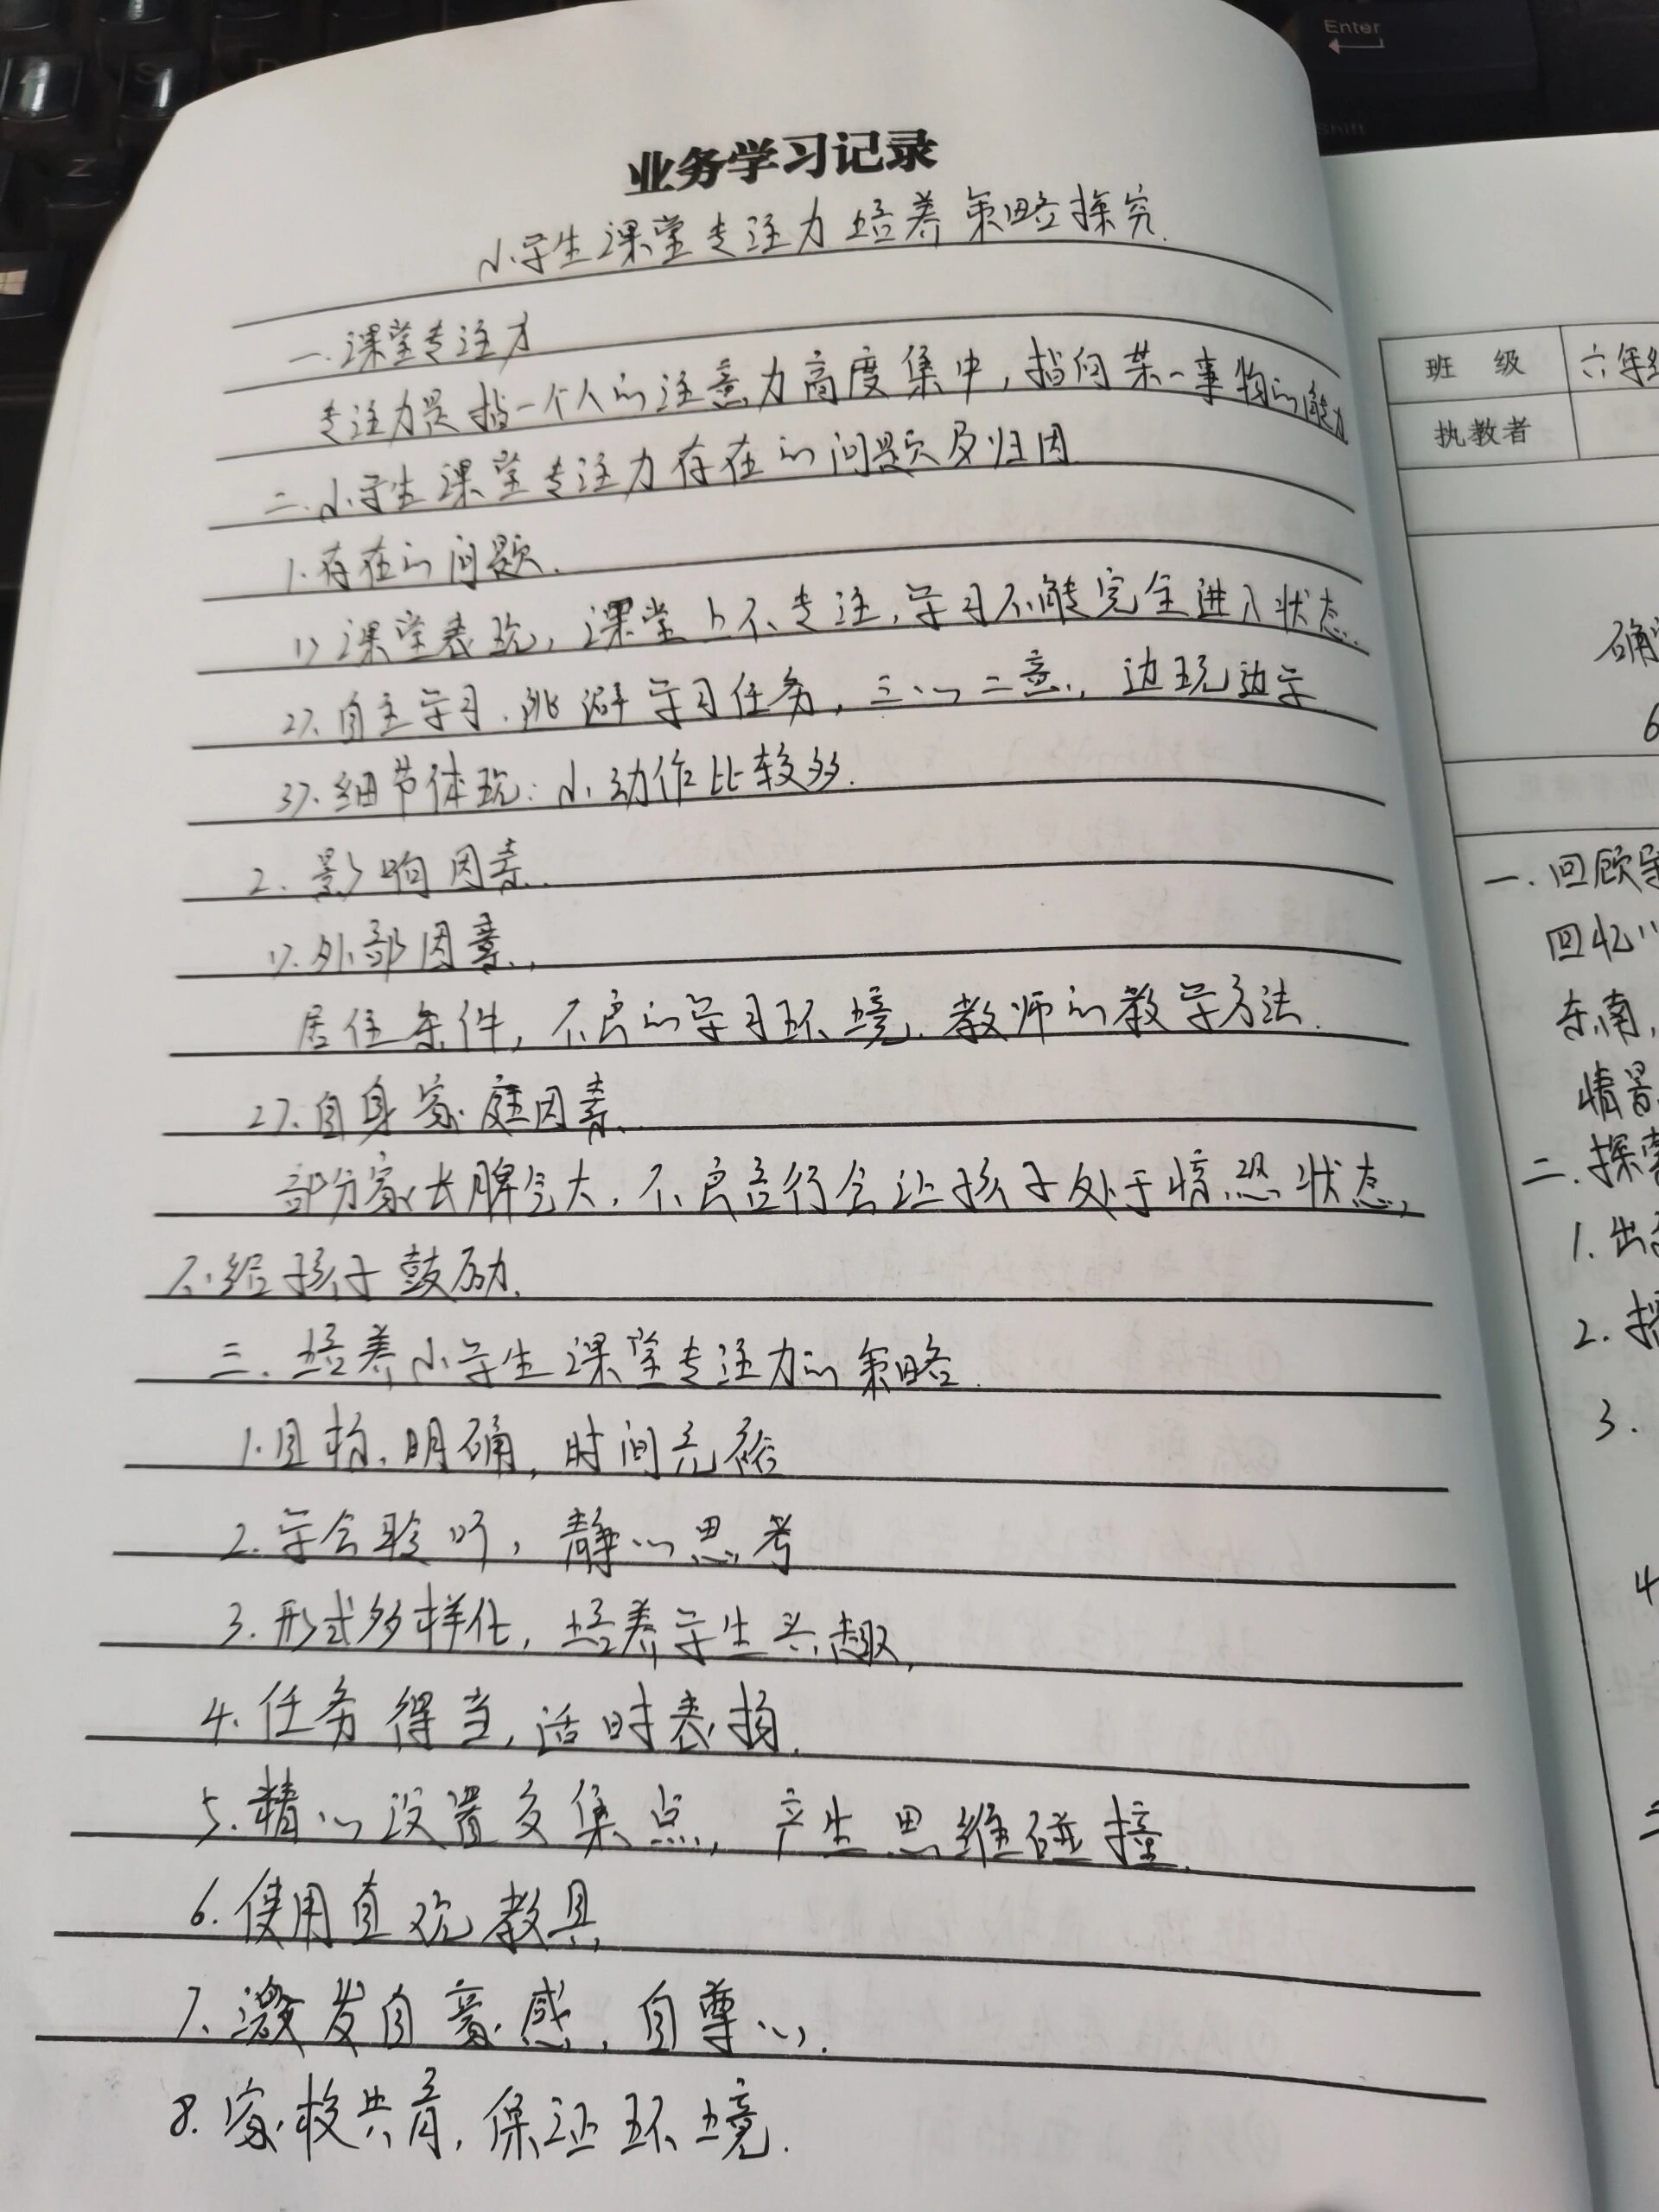 业务学习记录
小学生课堂专注力培养策略探究.
一.课堂专注力
专注力是指一个人的注意力高度集中,指向某一事物的能力
二.小学生课堂专注力存在的问题及归因
1.存在的问题.
1>课堂表现,课堂上不专注,学习不能完全进入状态.
2>.自主学习.逃避学习任务,三心二意,边玩边学.
3>.细节体现:小动作比较多.
2.影响因素.
1>.外部因素.
居住条件,不良的学习环境.教师的教学方法.
2>.自身家庭因素.
部分家长脾气大.不良言行会让孩子处于惊恐状态,
不给孩子鼓励.
三.培养小学生课堂专注力的策略.
1.目标明确,时间充裕
2.学会聆听,静心思考
3.形式多样化,培养学生兴趣,
4.任务得当,适时表扬.
5.精心设置交集点,产生思维碰撞.
6.使用直观教具
7.激发自豪感,自尊心.
8.家校共育,保证环境.
Enter
Shift
Z
班级 六年级
执教者
确
6
一.回顾
回忆
东南,
情景
二.探索
1.出
2.
3.
4